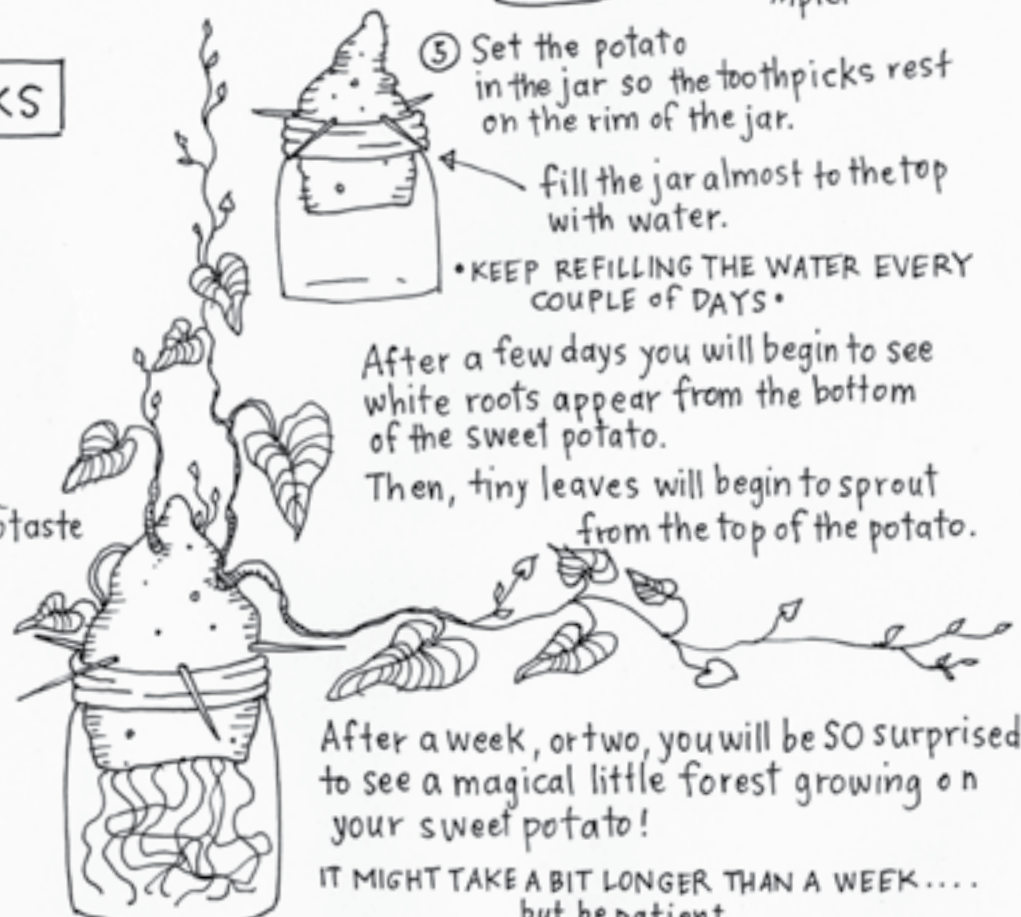 KS
⑤ Set the potato
in the jar so the toothpicks rest
on the rim of the jar.
fill the jar almost to the top
with water.
•KEEP REFILLING THE WATER EVERY
COUPLE of DAYS•
After a few days you will begin to see
white roots appear from the bottom
of the sweet potato.
Then, tiny leaves will begin to sprout
from the top of the potato.
taste
After a week, or two, you will be SO surprised
to see a magical little forest growing on
your sweet potato!
IT MIGHT TAKE A BIT LONGER THAN A WEEK....
but be patient